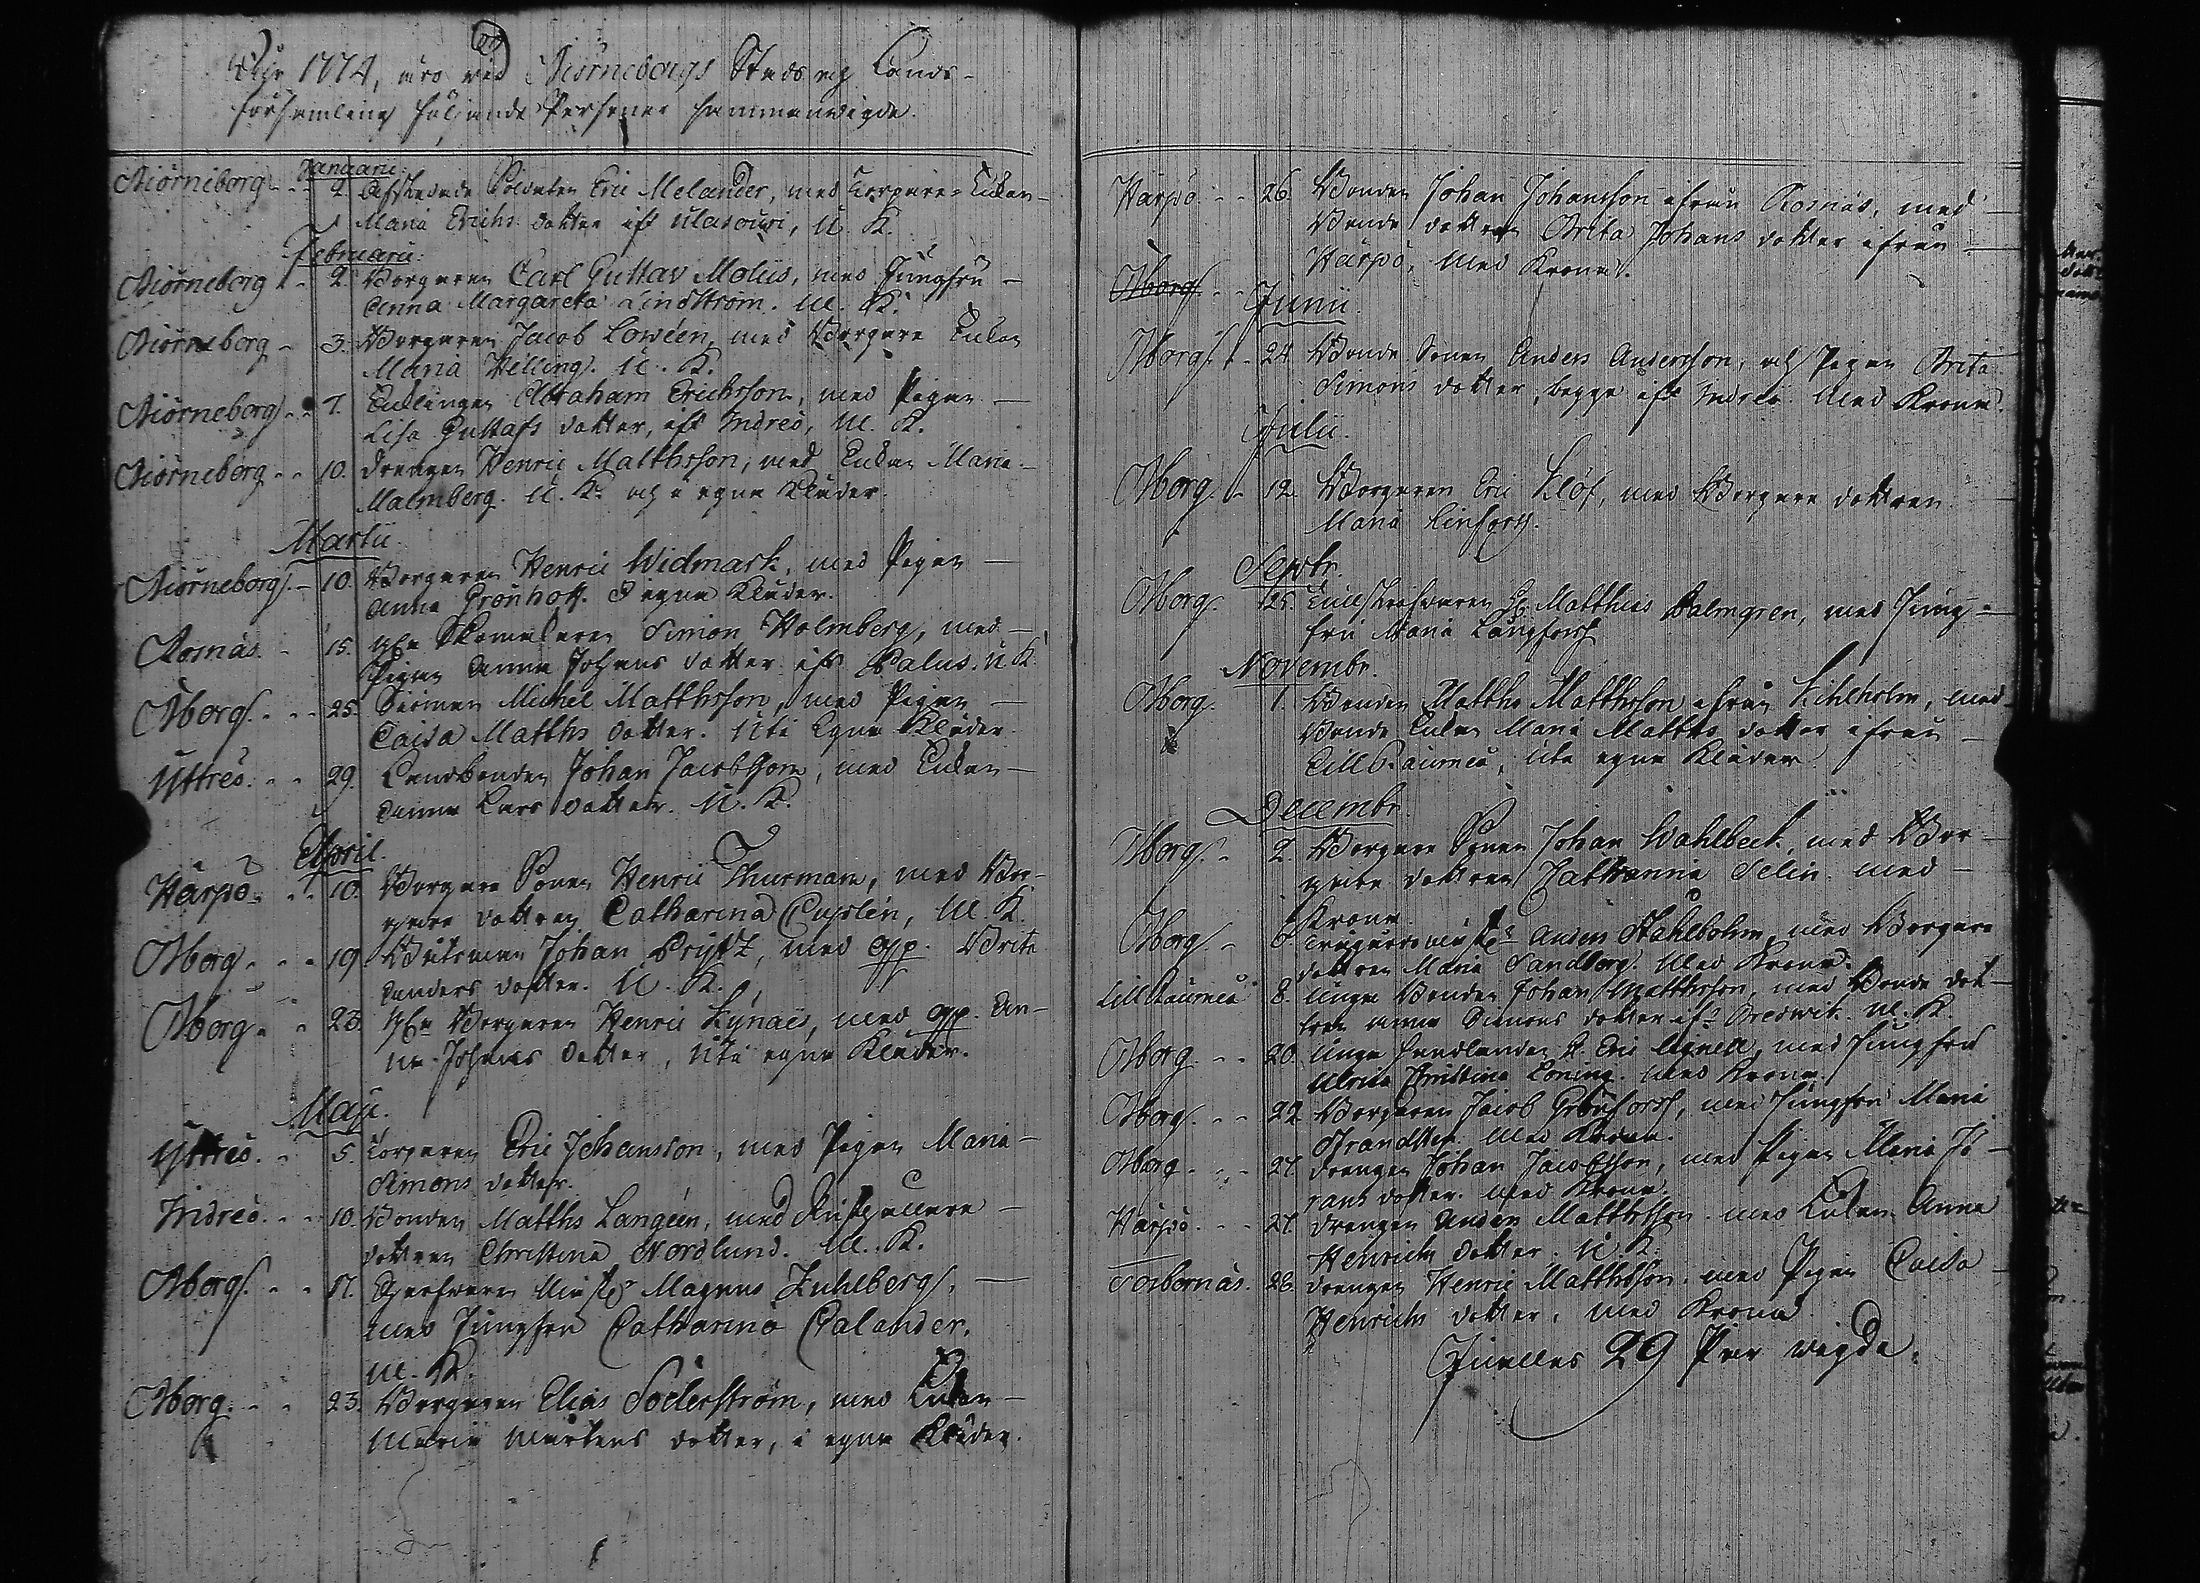 Åhr 1774, äro wid Biörneborgs Stads och Lands-
församling följande Personer sammanwigde.
Januarii.
Biörneborg - - 2. Afskedade Soldaten Eric Melander, med Torpare Enkan
Maria Erichs dotter ifr U. K.
Februarii.
Biörneborg - 2. Borgaren Carl Gustav Moliis, med Jungfru
Anna Margareta Lindström. M. K.
Biörneborg - 3. Borgaren Jacob Loween, med Borgare Enkan
Maria Helling. U. K.
Biörneborg - - 7. Enklingen Abraham Erichsson, med Pigan
Lisa Gustafs dotter, ifr Indreö, M. K.
Biörneborg - - 10. Drengen Henric Matthsson, med Enkan Maria
Malmberg. U. K. och i egna Kläder.
Martii.
Biörneborg. - 10. Borgaren Henric Widmark, med Pigan
Anna Grönhoff. I egna Kläder.
Rosnäs. - 15. Simon Holmberg, med
Pigan Anna Johans dotter ifr Palus. U. K.
Bborg. - - 25. Michel Matthsson, med Pigan
Caisa Matths dotter. Uti Egna Kläder.
Yttreö. - - 29. Landbonden Johan Jacobsson, med Enkan
Anna Lars dotter. U. K.
April.
Härpö - - 10. Borgare Sonen Henric Thurman, med Bor-
gare dottren Catharina Cupslen, M. K.
Bborg - - 19. Båtsman Johan Prijtz, med qp. Brita
Anders dotter. U. K.
Bborg - - 23. Borgaren Henric Kynäes, med qp. An-
na Johans dotter, Uti egna Kläder.
Maji.
Yttreö. - 5. Torparen Eric Johansson, med Pigan Maria
Simons dotter.
Indreö. - - 10. Bonden Matths Langéen, med
dottren Christina Nordlund. M. K.
Bborg. - - 17. Magnus Kuhlberg,
med Jungfru Catharina Calander.
M. K.
Bborg. - - 23. Borgaren Elias Söderström, med Enkan
Maria Mårtens dotter, i egna Kläder.
Härpö - - 26. Bonden Johan Johansson ifrån Rosnäs, med
Bonde dottren Brita Johans dotter ifrån
Härpö, Med Krona.
Bborg - -
Junii.
Bborg. - 24. Bonde Sonen Anders Andersson, och Pigan Brita
Simons dotter, begge ifr Indreö. Med Krona.
Julii.
Bborg. - 12. Borgaren Eric Klöf, med Borgare dottren
Maria Linfors.
Septbr.
Bborg. 25. Matthias Palmgren, med Jung-
fru Maria Långfors
Novembr.
Bborg. 1. Bonden Matths Matthsson ifrån Kihlholm, med
Bonde Enkan Maria Matths dotter ifrån
Lill Raumå, Uti egna Kläder
Decembr.
Bborg. - 2. Borgare Sonen Johan Wahlbeck, med Bor-
gare dottren Catharina Selin. med
Krona.
Bborg. - 6. Anders Stahlbohm, med Borgare
dottren Maria Sandberg. Med Krona.
Lill Raumå 8. Unga Bonden Johan Matthsson, med Bonde dot-
tren Anna Simons dotter ifr Bredwik. M. K.
Bborg. - - 20. Unga Handlanden H. Eric Agnell, med Jungfru
Ulrica Christina Loning. Med Krona.
Bborg. - - 22. Borgaren Jacob Grönfors, med Jungfru Maria
Strandsten. Med Krona.
Bborg - - 27. Drengen Johan Jacobsson, med Pigan Maria Jö-
rans dotter. Med Krona.
Härpö. - - 27. Drengen Anders Matthsson. med Enkan Anna
Henrichs dotter. U. K.
Torbornäs. 28. Drengen Henric Matthsson. med Pigan Caisa
Henrichs dotter, med Krona
29 Par wigda.